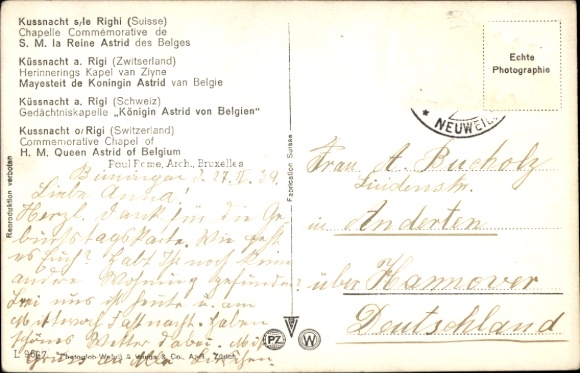 Kussnacht s/le Righi (Suisse)
Chapelle Commémorative de
S. M. la Reine Astrid des Belges
Küssnacht a. Rigi (Zwitserland)
Herinnerings Kapel van Ziyne
Mayesteit de Koningin Astrid van Belgie
Küssnacht a. Rigi (Schweiz)
Gedächtniskapelle „Königin Astrid von Belgien"
Kussnacht o/Rigi (Switzerland)
Commemorative Chapel of
H. M. Queen Astrid of Belgium
Paul Rome, Arch., Bruxelles
Reproduktion verboten
Binningen d. 27. II. 39.
Liebe Anna!
Herzl. Dank für die Ge-
burtstagskarte. Wie geht
es Euch? Habt Ihr noch keine
andre Wohnung gefunden?
Bei uns ist heute u. am
Mittwoch Fastnacht. Haben
schönes Wetter dabei. Mit
Gruss an alle
L 9667 Photogleb-Wehrli & Vouga & Co. A.-G., Zürich
Fabrication Suisse
PZ
W
Echte
Photographie
* NEUWEIL
Frau A. Bucholz
Lindenstr.
in Anderten
über Hannover
Deutschland